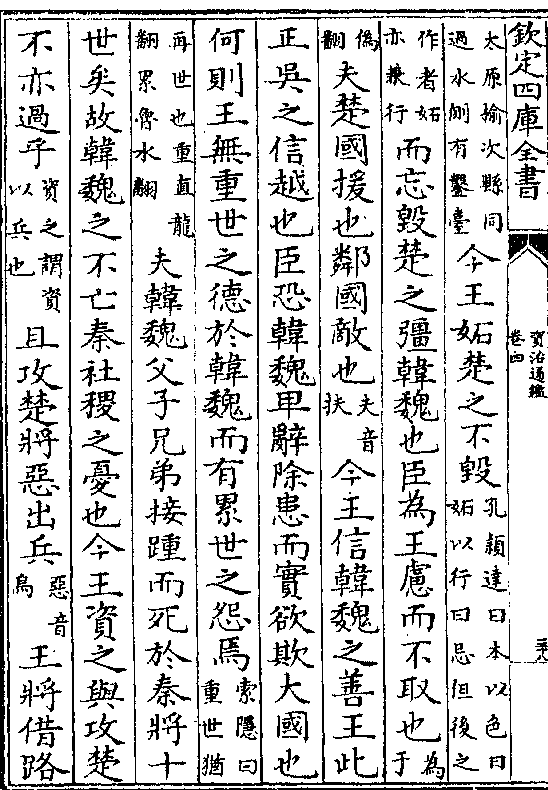 欽定四庫全書
資治通鑑
卷四
太原榆次縣同
過水側有鑿臺
今王妬楚之不毀
孔穎達曰本以色曰
妬以行曰忌但後之
作者妬
亦兼行
而忘毀楚之彊韓魏也臣為王慮而不取也
為
于
偽
翻
夫楚國援也鄰國敵也
夫音
扶
今王信韓魏之善王此
正吳之信越也臣恐韓魏卑辭除患而實欲欺大國也
何則王無重世之德於韓魏而有累世之怨焉
索隱曰
重世猶
再世也重直龍
翻累魯水翻
夫韓魏父子兄弟接踵而死於秦將十
世矣故韓魏之不亡秦社稷之憂也今王資之與攻楚
不亦過乎
資之謂資
以兵也
且攻楚將惡出兵
惡音
烏
王將借路